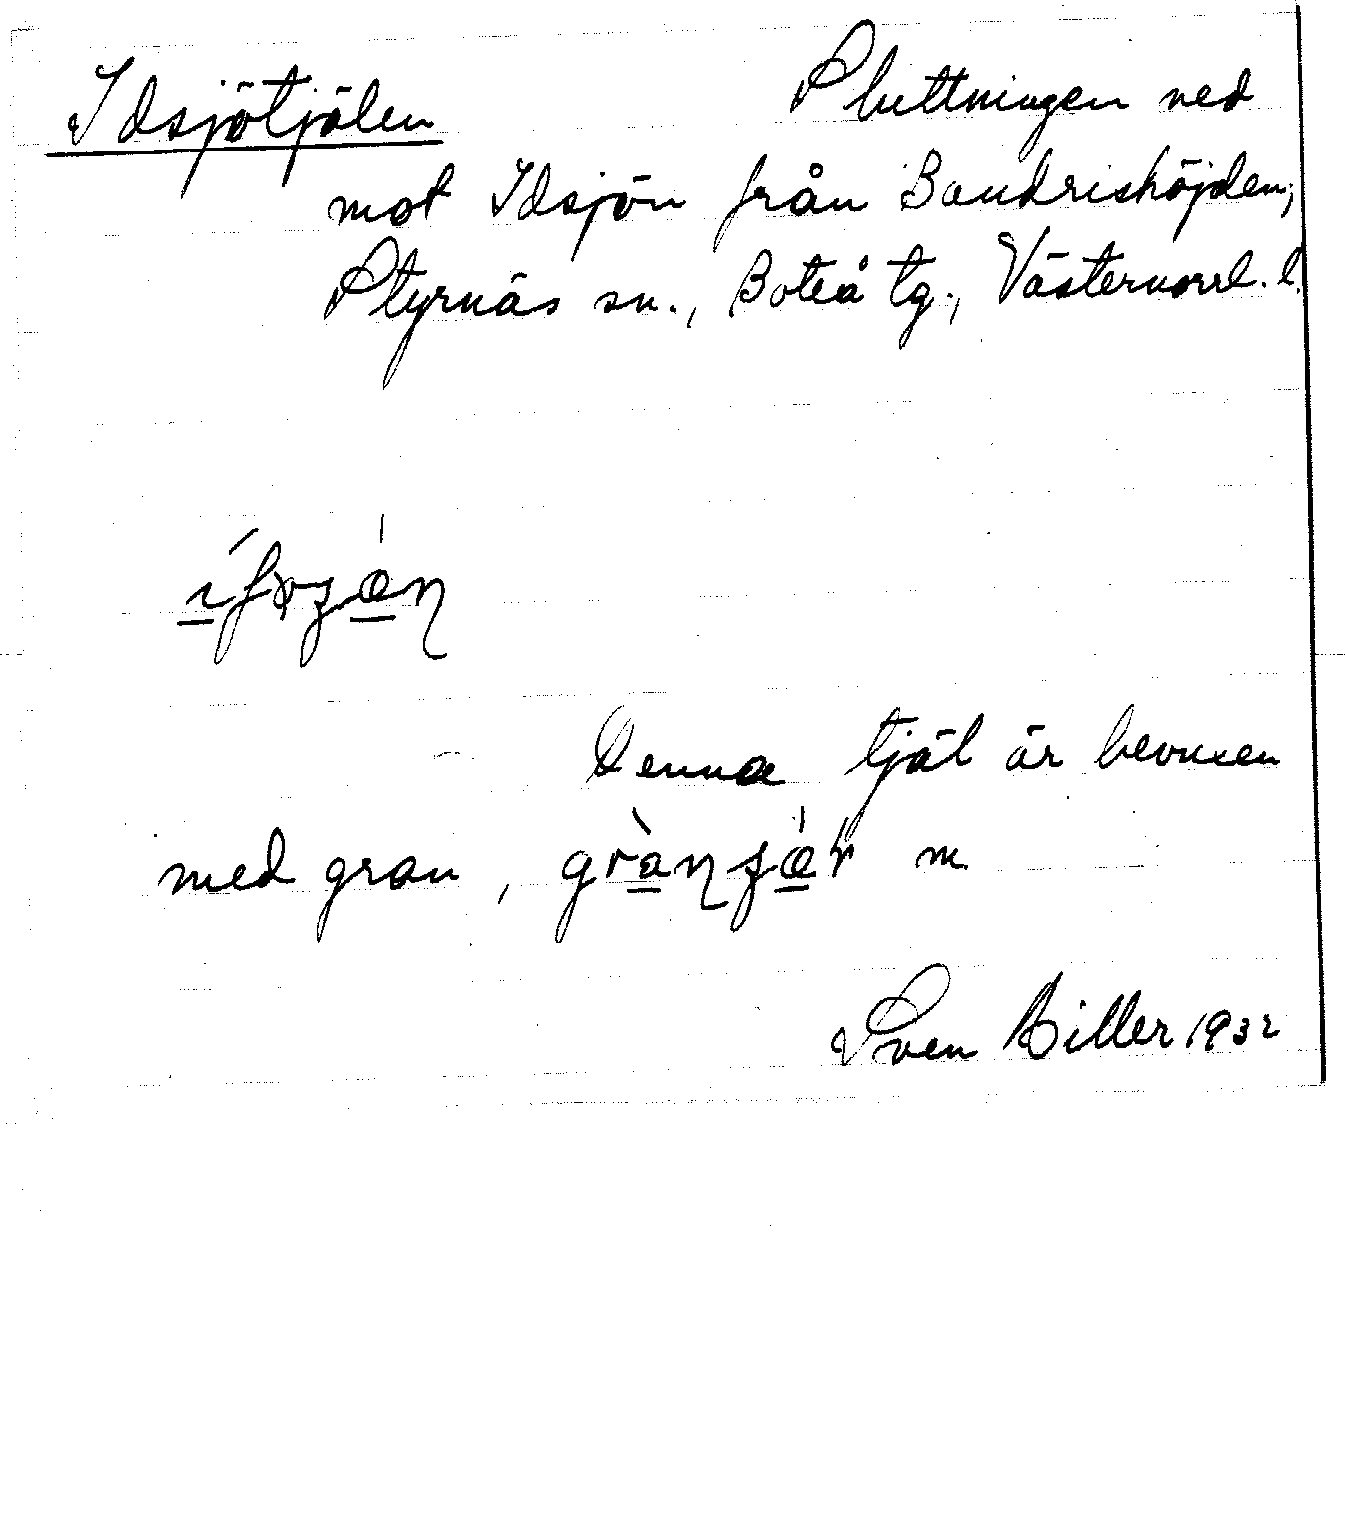 Idsjötjälen Sluttningen ned
mot Idsjön från Bandrishöjden;
Styrnäs sn., Boteå tg., Västernorrl. l.
Denna tjäl är bevuxen
med gran, m
Sven Hiller 1932